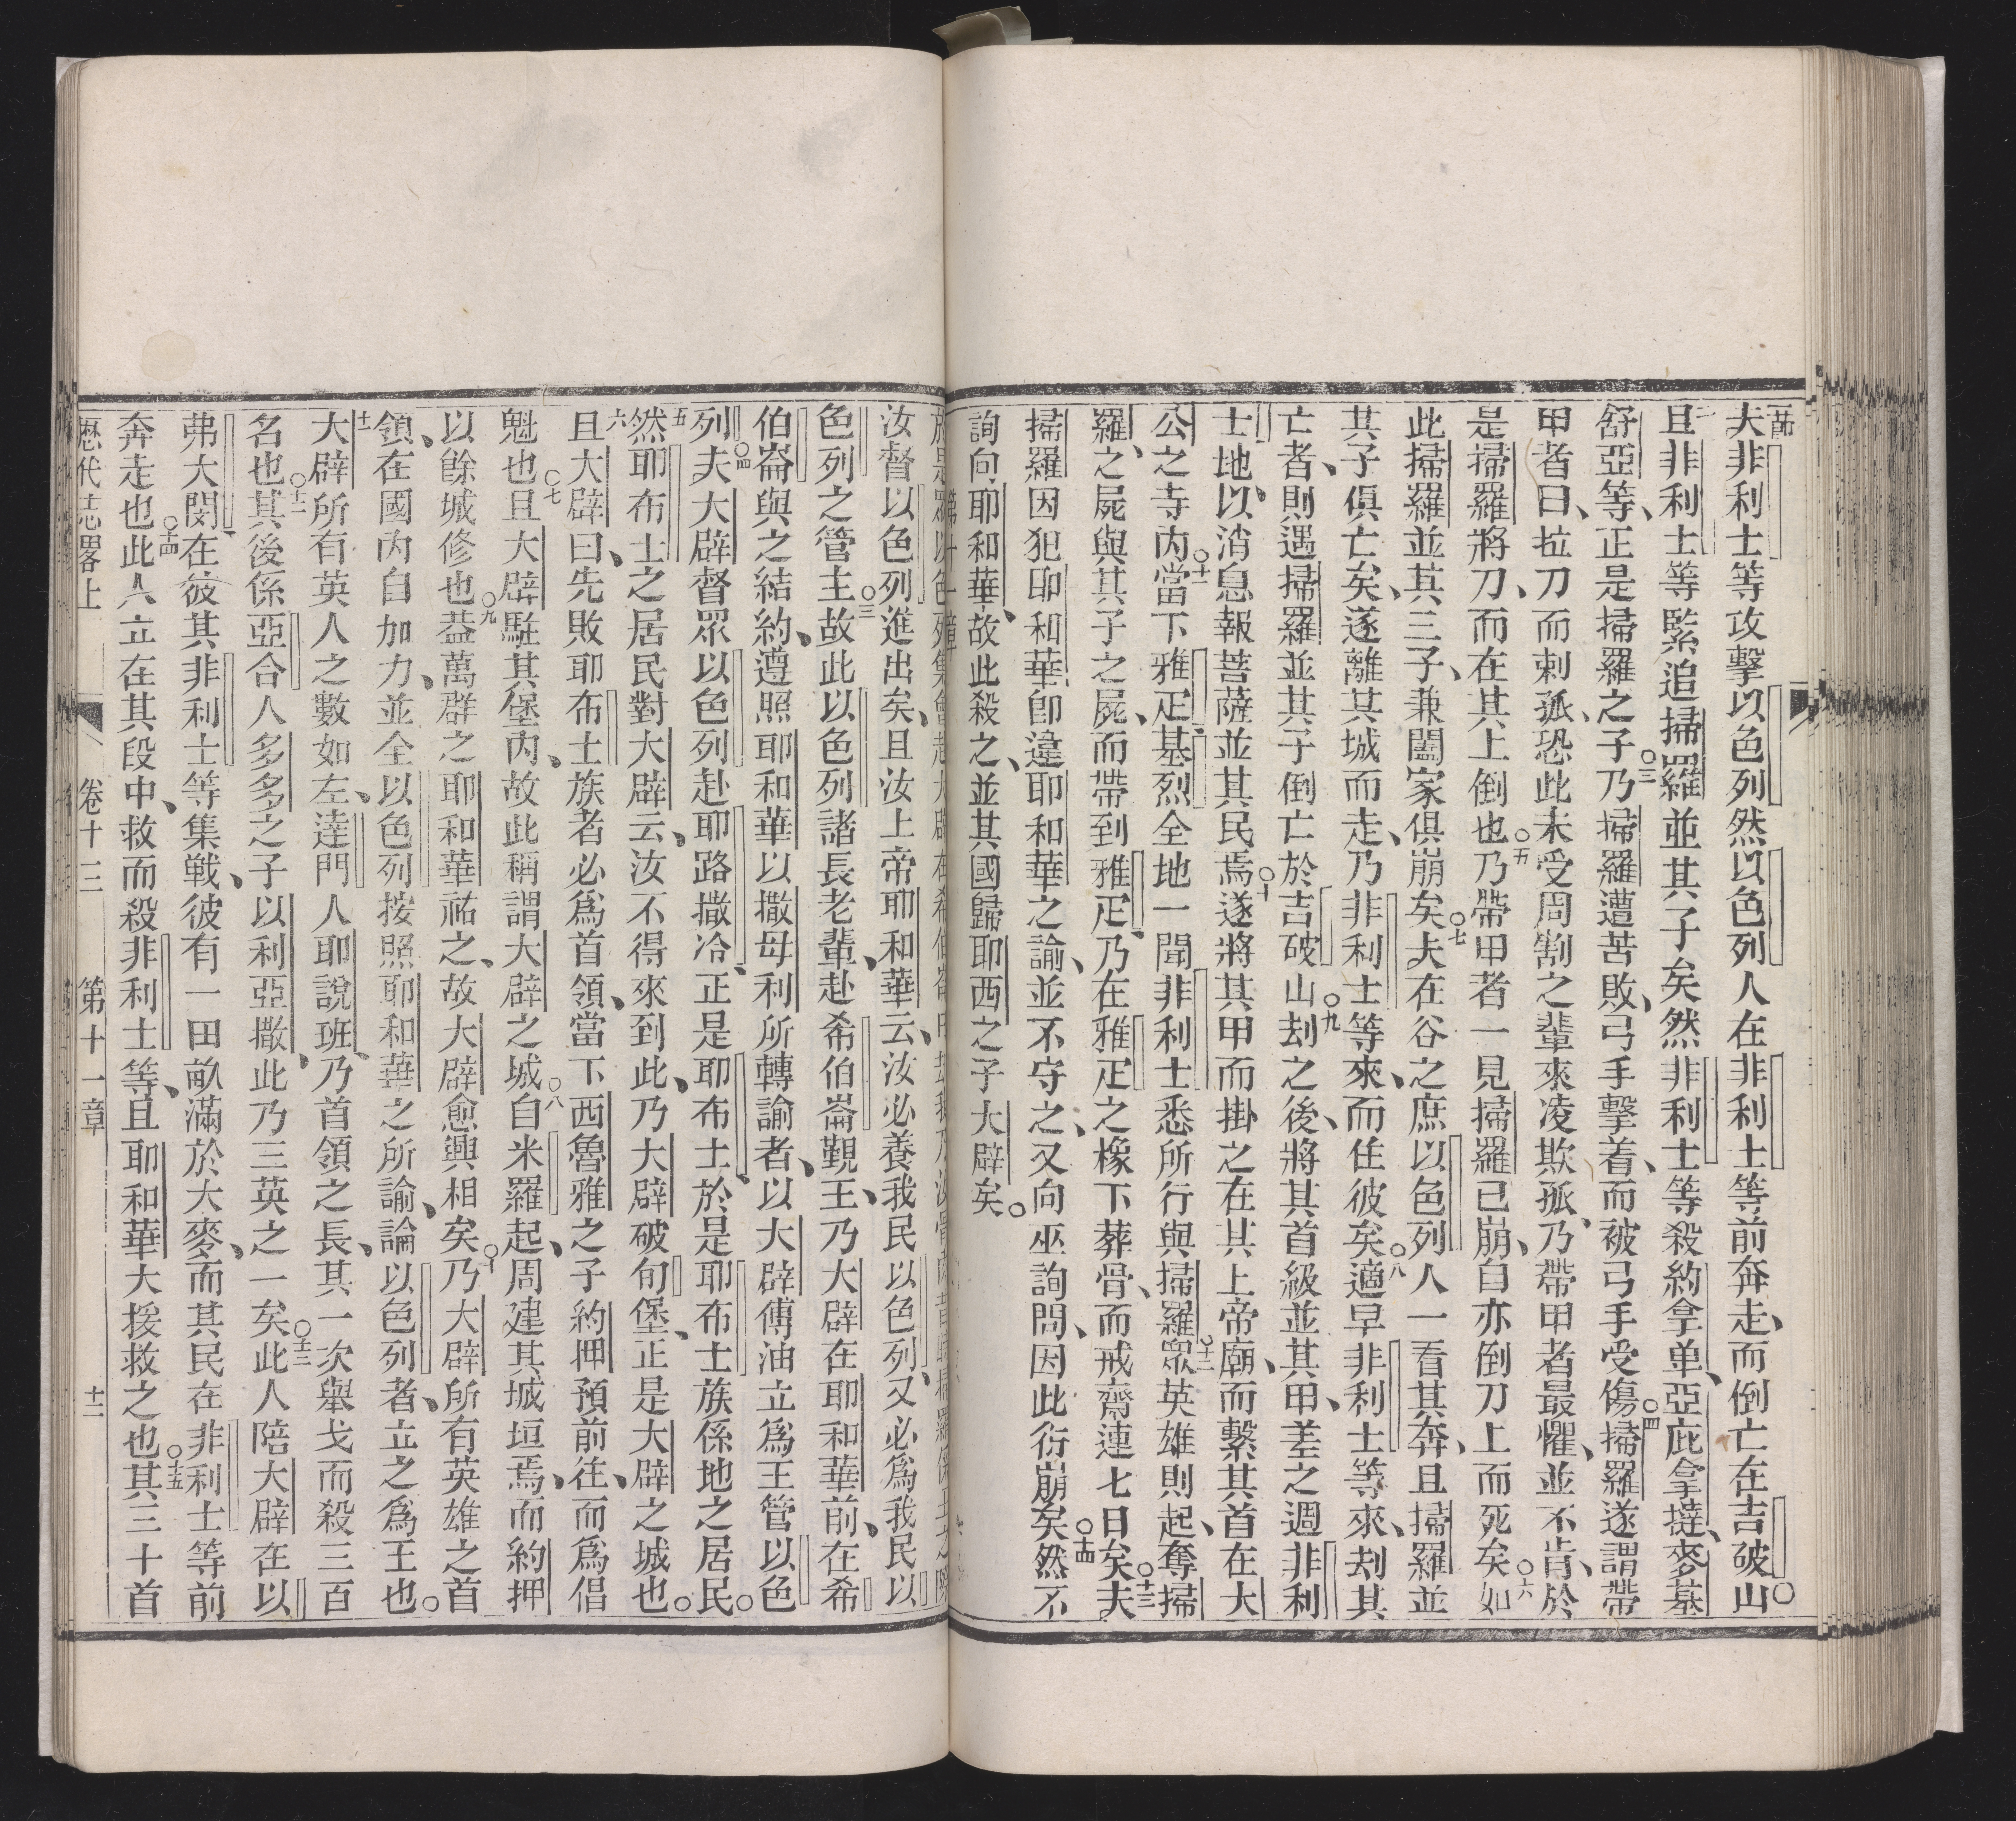 夫非利士等攻擊以色列然以色列人在非利士等前奔走而倒亡在吉破山○
二且非利士等緊追掃羅並其子矣然非利士等殺約拿单亞庇拿撻麥基
舒亞等正是掃羅之子○三乃掃羅遭苦敗弓手擊着而被弓手受傷○四掃羅遂謂帶
甲者曰拉刀而刺孤恐此未受周割之輩來凌欺孤乃帶甲者最懼並不肯於
是掃羅將刀而在其上倒也○五乃帶甲者一見掃羅已崩自亦倒刀上而死矣○六如
此掃羅並其三子兼闔家俱崩矣○七夫在谷之庶以色列人一看其奔且掃羅並
其子俱亡矣遂離其城而走乃非利士等來而住彼矣○八適早非利士等來刦其
亡者則遇掃羅並其子倒亡於吉破山○九刦之後將其首級並其甲差之週非利
士地以消息報菩薩並其民焉○十遂將其甲而掛之在其上帝廟而繫其首在大
公之寺內○十一當下雅疋基烈全地一聞非利士悉所行與掃羅○十二眾英雄則起奪掃
羅之屍與其子之屍而帶到雅疋乃在雅疋之橡下葬骨而戒齋連七日矣○十三夫
掃羅因犯耶和華卽違耶和華之諭並不守之又向巫詢問因此衍崩矣○十四然不
詢向耶和華故此殺之並其國歸耶西之子大辟矣○
汝督以色列進出矣且汝上帝耶和華云汝必養我民以色列又必為我民以
色列之管主○三故此以色列諸長老輩赴希伯崙覲王乃大辟在耶和華前在希
伯崙與之結約遵照耶和華以撒母利所轉諭者以大辟傳油立為王管以色
列○四夫大辟督眾以色列赴耶路撒冷正是耶布士於是耶布士族係地之居民○
五然耶布士之居民對大辟云汝不得來到此乃大辟破旬堡正是大辟之城也○
六且大辟曰先敗耶布士族者必為首領當下西魯雅之子約押預前往而為倡
魁也○七且大辟駐其堡內故此稱謂大辟之城○八自米羅起周建其城垣焉而約押
以餘城修也○九葢萬群之耶和華祐之故大辟愈興相矣○十乃大辟所有英雄之首
領在國內自加力並全以色列按照耶和華之所諭論以色列者立之為王也○
十一大辟所有英人之數如左達門人耶說班乃首領之長其一次舉戈而殺三百
名也○十二其後係亞合人多多之子以利亞撒此乃三英之一矣○十三此人陪大辟在以
弗大閔在彼其非利士等集戰彼有一田畝滿於大麥而其民在非利士等前
奔走也○十四此人立在其段中救而殺非利士等且耶和華大援救之也○十五其三十首
歷代志畧上 卷十三 第十一章 十二